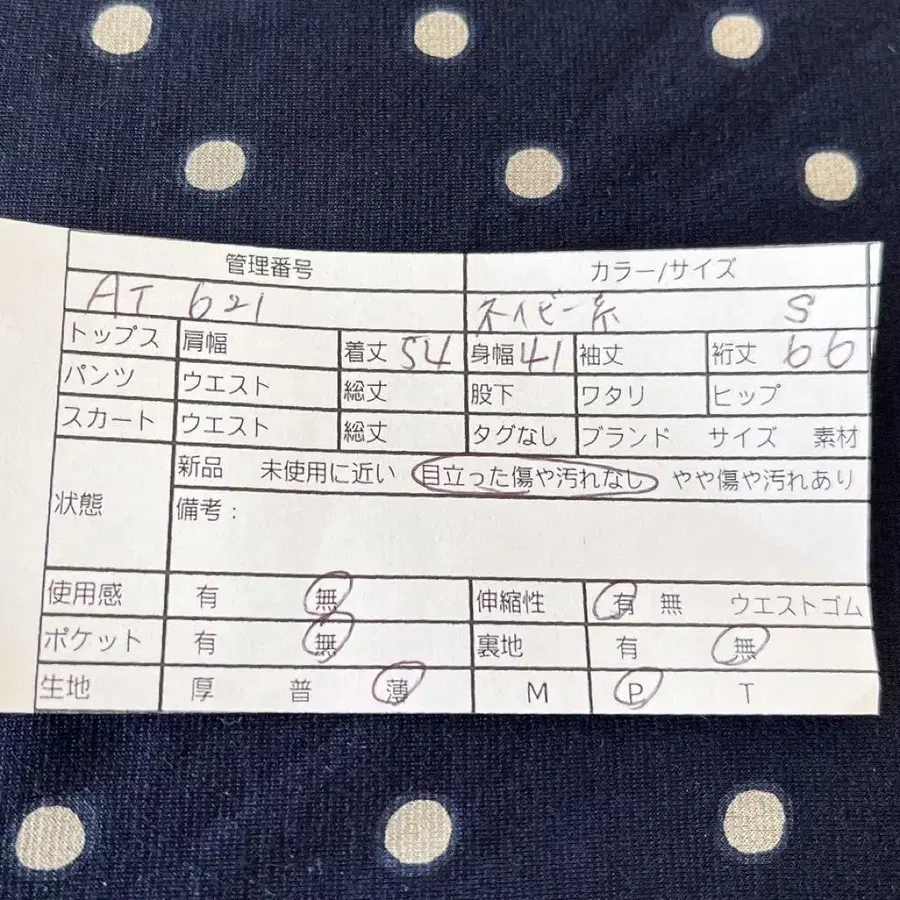 管理番号 カラー/サイズ
AT 621 ネイビー系 S
トップス 肩幅 着丈 54 身幅 41 袖丈 裄丈 66
パンツ ウエスト 総丈 股下 ワタリ ヒップ
スカート ウエスト 総丈 タグなし ブランド サイズ 素材
状態 新品 未使用に近い 目立った傷や汚れなし やや傷や汚れあり
備考:
使用感 有 無 伸縮性 有 無 ウエストゴム
ポケット 有 無 裏地 有 無
生地 厚 普 薄 M P T